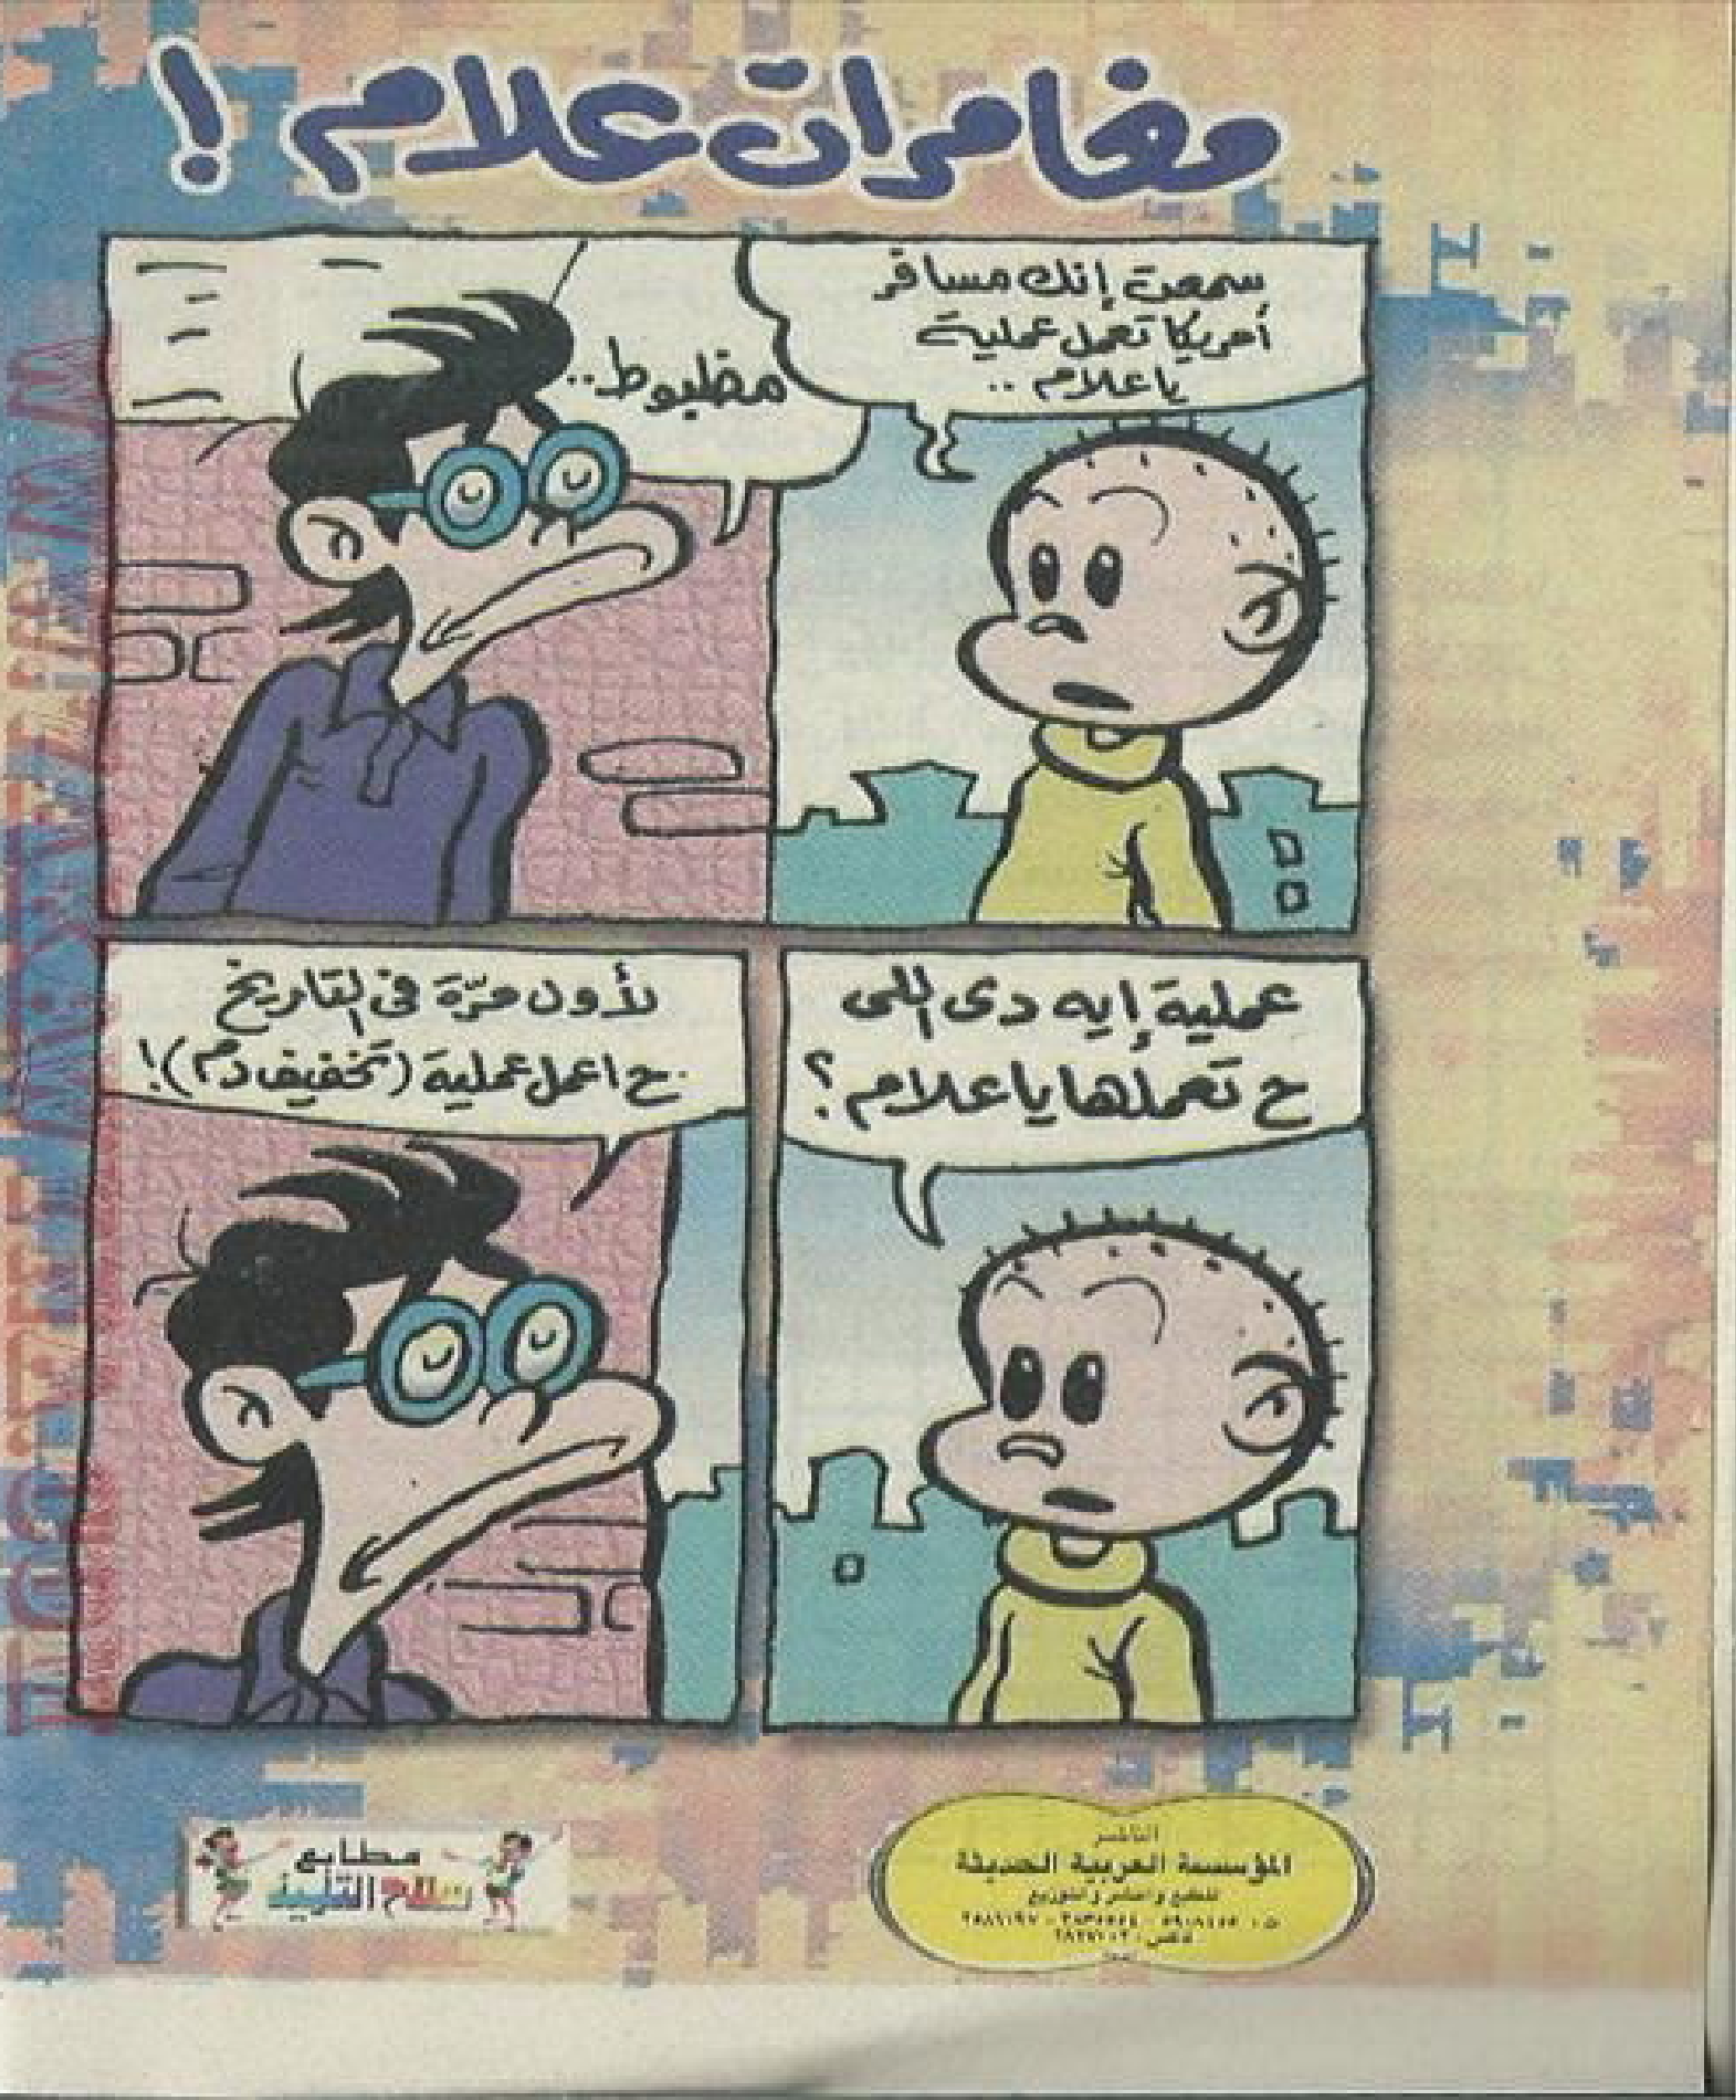 مغامرات علام !
سمعت إنك مسافر
أمريكا تعمل عملية
يا علام ..
مظبوط..
عملية إيه دى اللى
ح تعملها يا علام ؟
لأول مرّة فى التاريخ
ح اعمل عملية (تخفيف دم)!
الناشر
المؤسسة العربية الحديثة
للطبع والنشر والتوزيع
مطابع
سلاح التلميذ